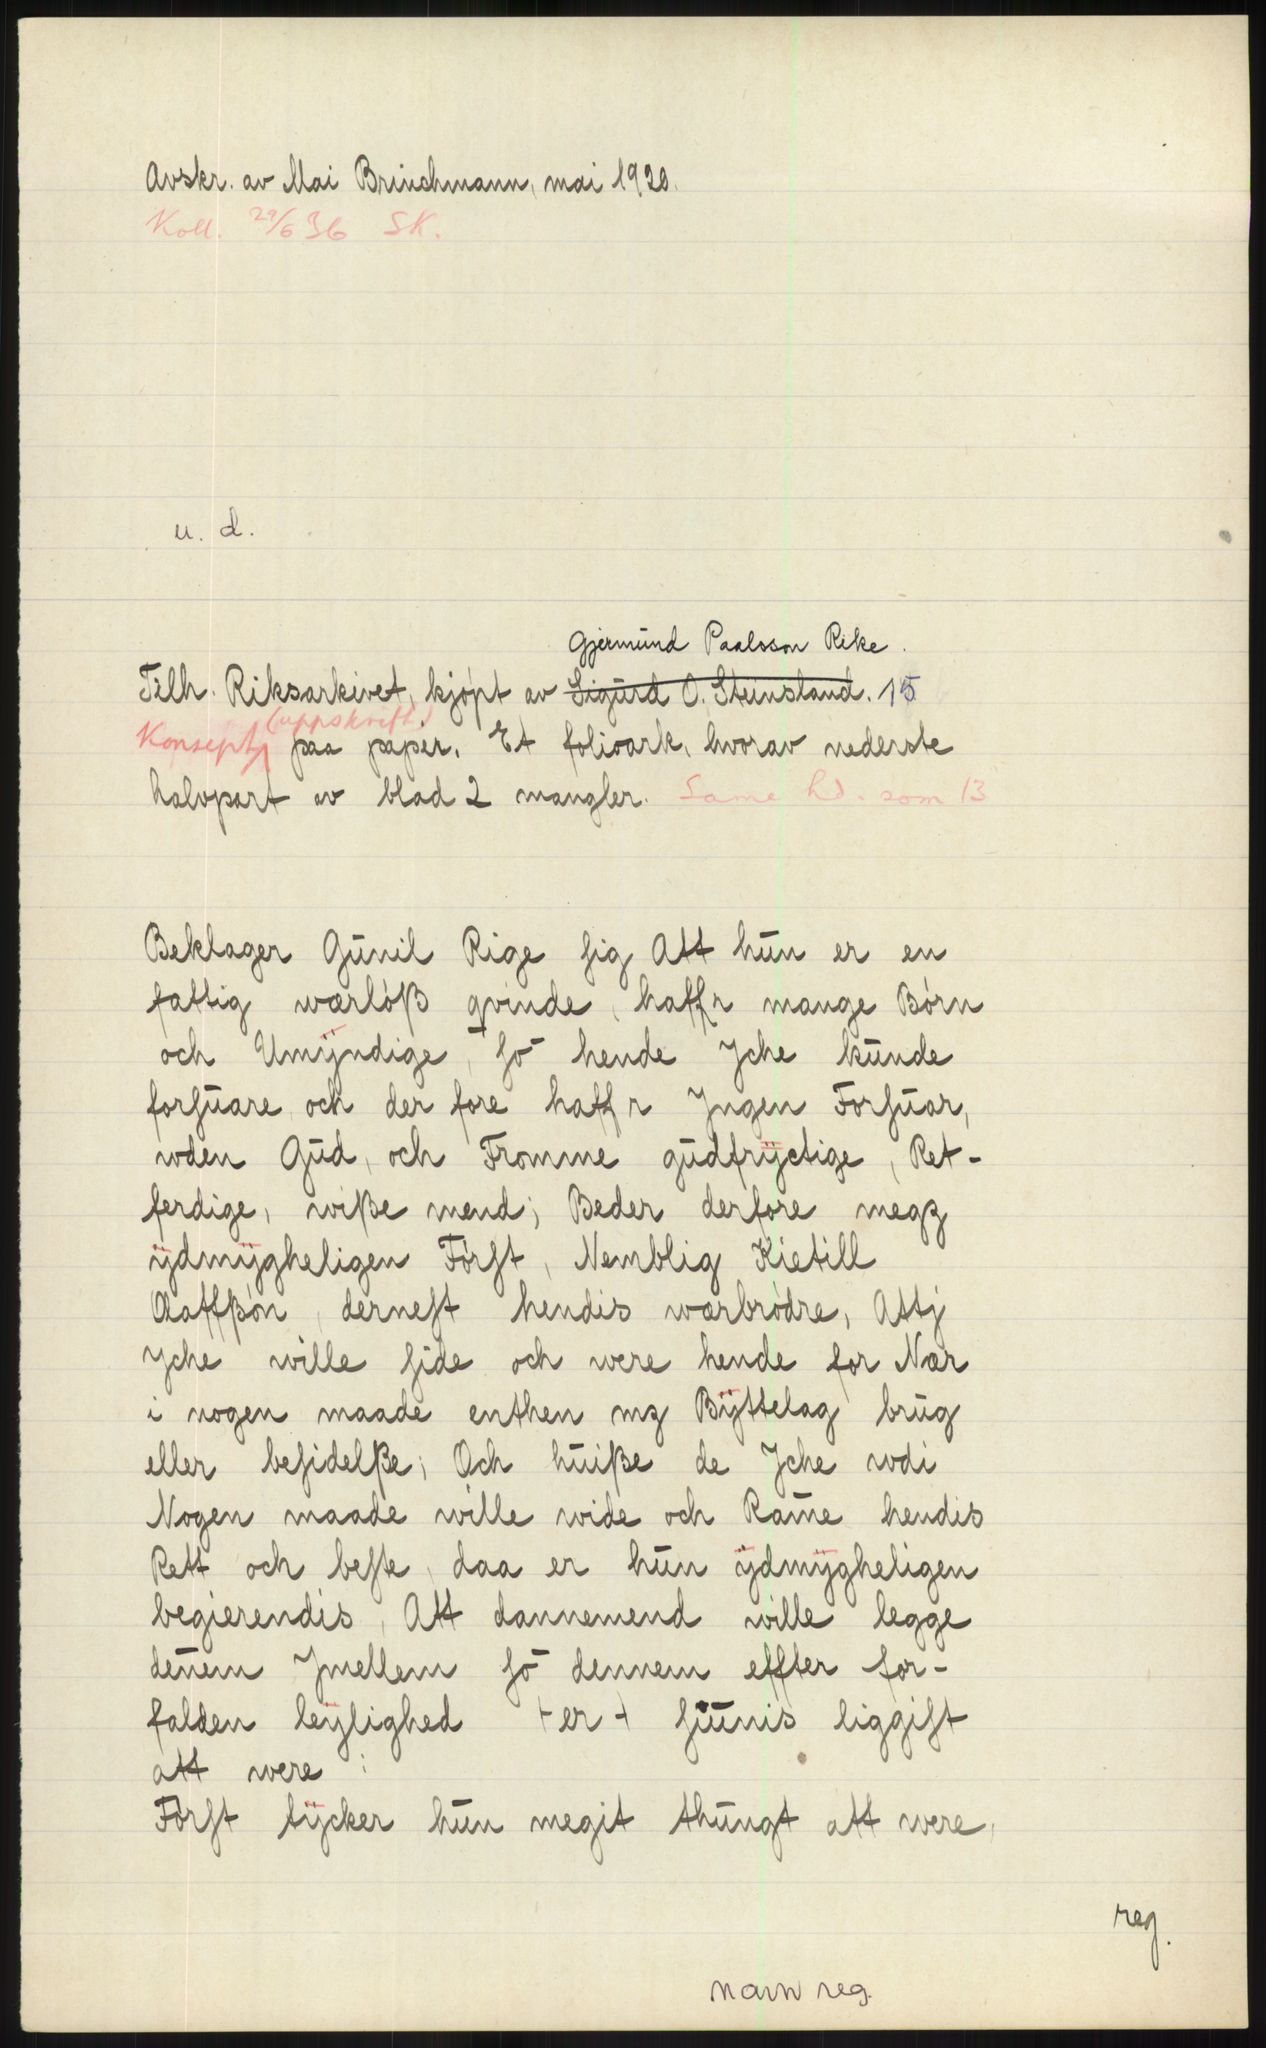 Avskr. av Mai Brinchmann, mai 1920.
Koll. 29/6 36 SK.
u. d.
Gjermund Paalsson Rike.
Tilh. Riksarkivet, kjøpt av Sigurd O. Steinsland. 15
Konsept (uppskrift) paa papir. Et folioark, hvorav nederste
halvpart av blad 2 mangler. Same hd. som 13
Beklager Gunil Rige sig Att hun er en
fattig wærløß qvinde, haffr mange Børn
och Umÿndige, so hende Jche kunde
forsuare och der fore haffr Jngen Forsuar,
wden Gud, och Fromme gudfrÿctige, Ret-
ferdige, wiße mend; Beder derfore megz
ÿdmÿgheligen Først, Nemblig Kietill
Olaffßøn, dernest hendis wærbrødre, Attj
Jche wille side och were hende for Nær
i nogen maade enthen mz Bÿttelag brug
eller besidelße; Och huiße de Jche wdi
Nogen maade wille wide och Rame hendis
Rett och beste, daa er hun ÿdmÿgheligen
begierendis, Att dannemend wille legge
denem Jmellem so dennem effter for-
falden leÿlighed + er + siunis liggist
att were :
Først tÿcker hun megit thungt att were,
reg.
navn reg.